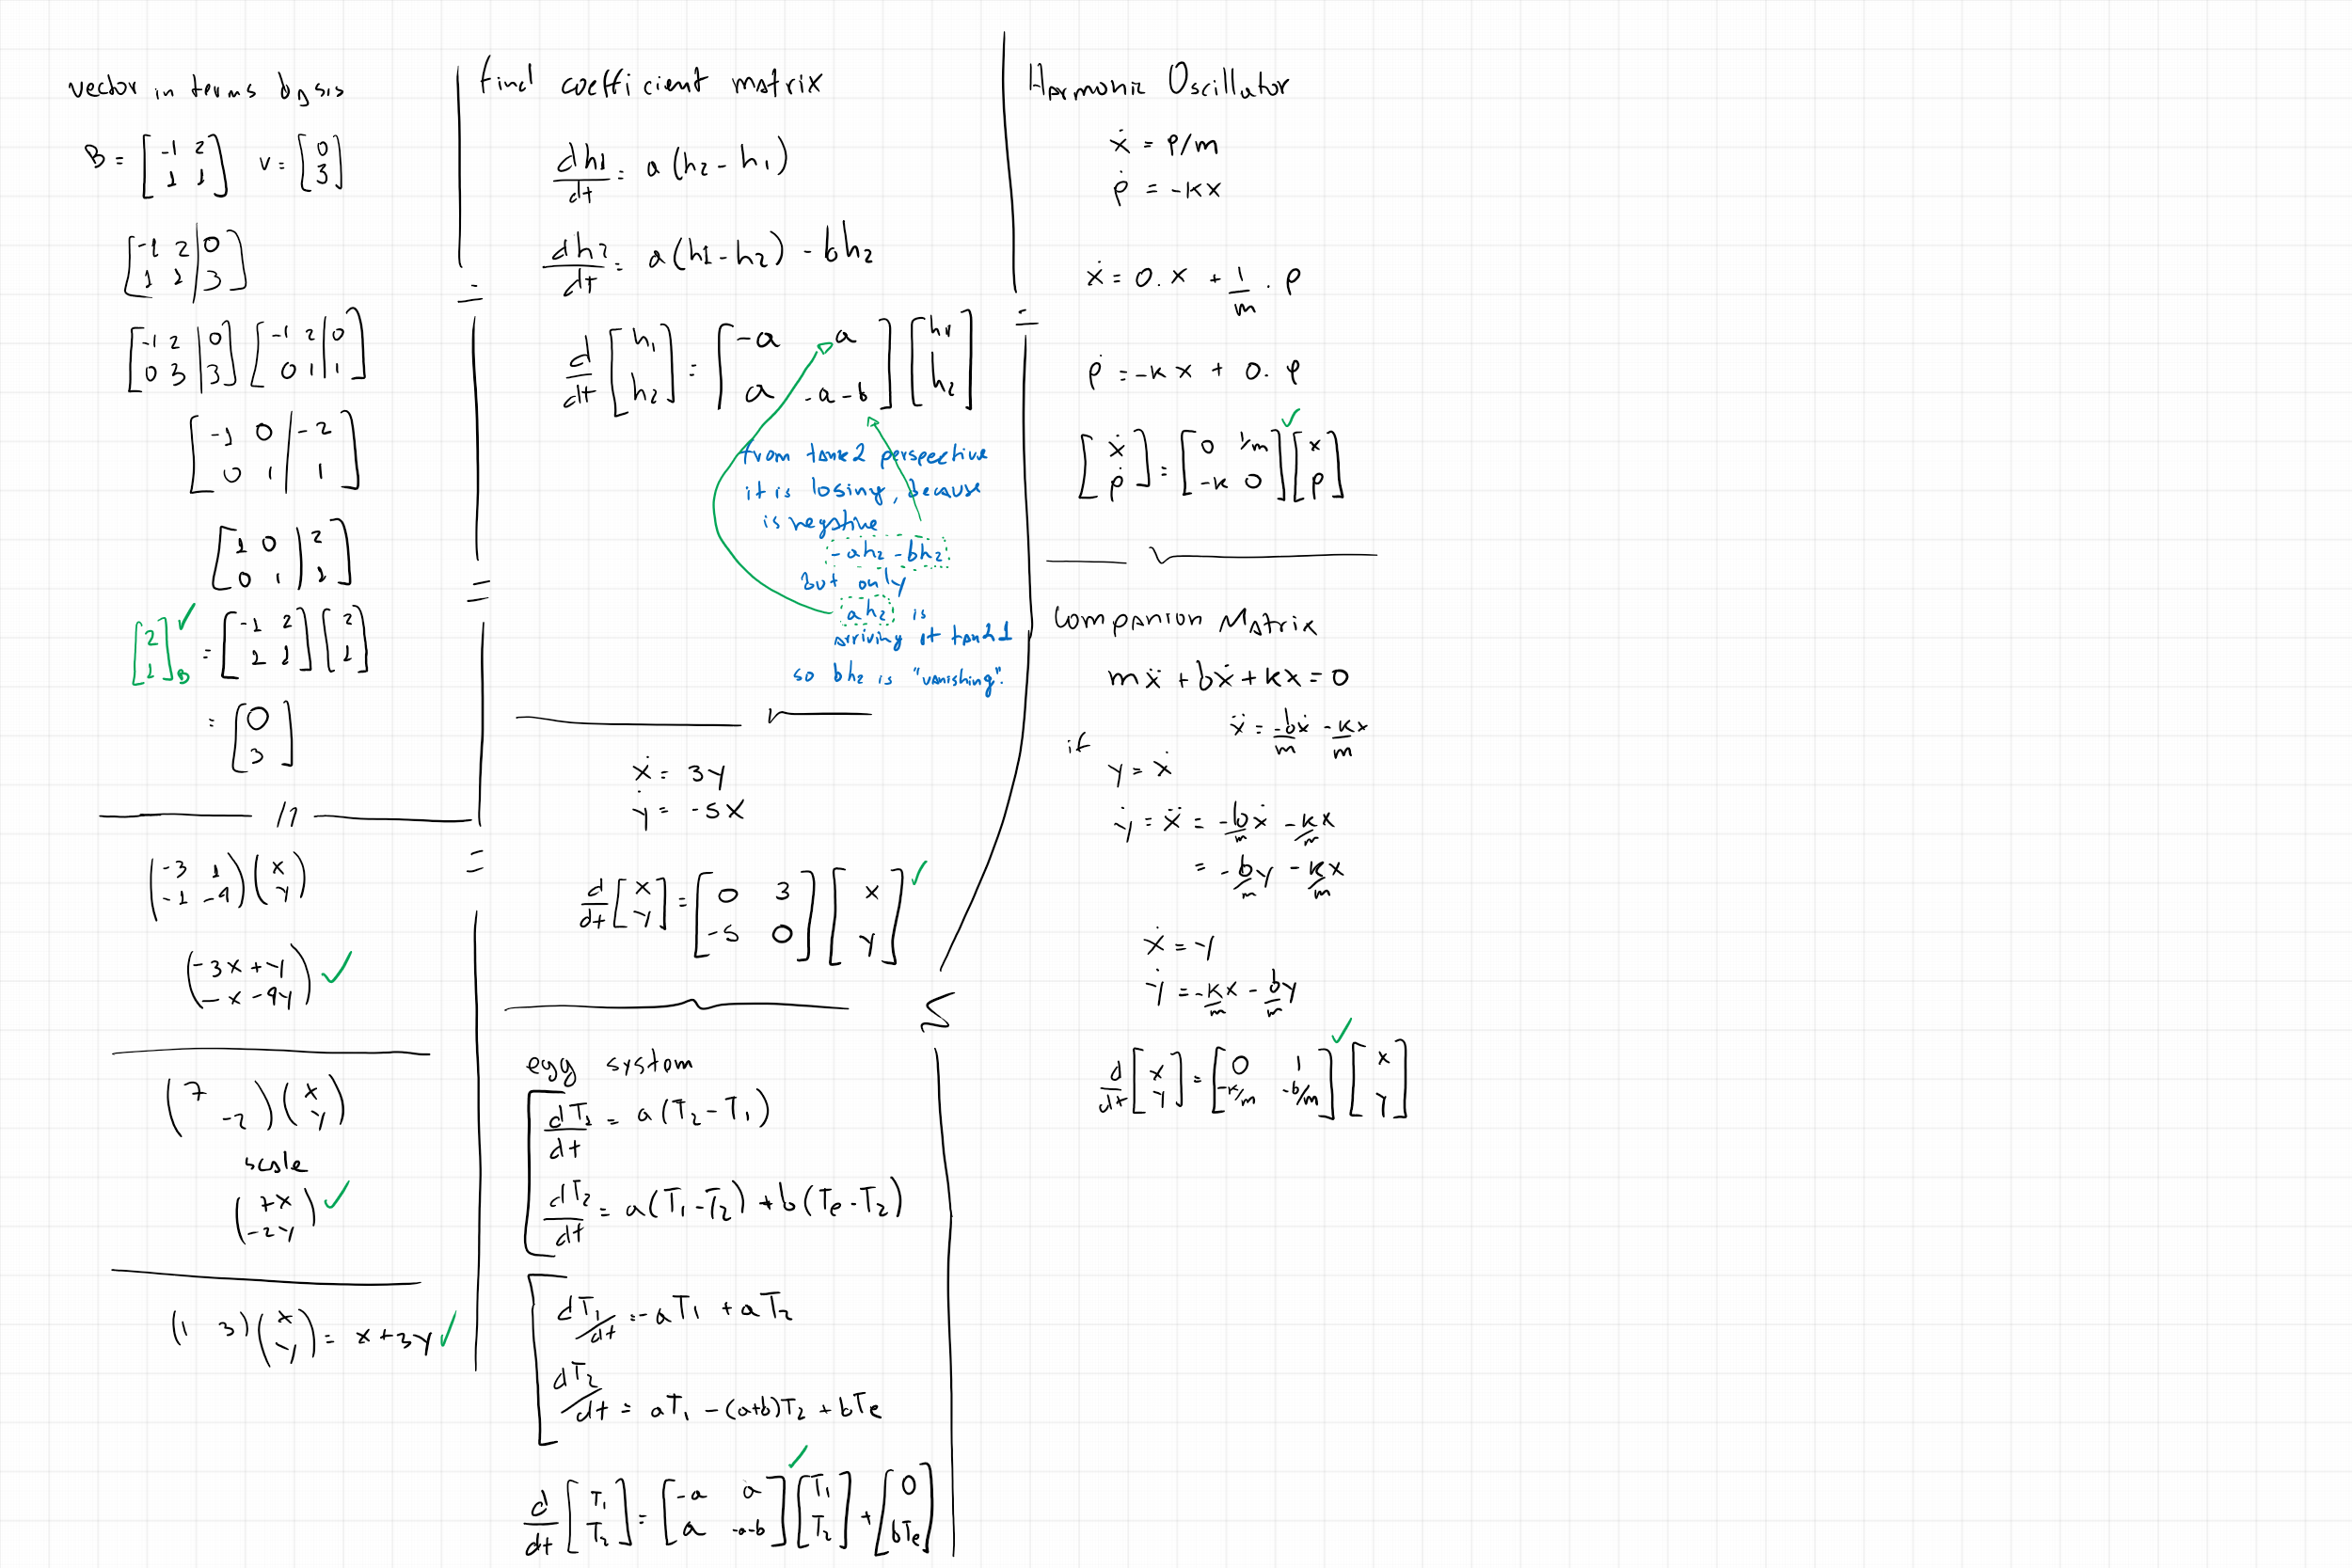 vector in terms basis
B = [-1 2; 1 1] v = [0; 3]
[-1 2 | 0; 1 1 | 3]
[-1 2 | 0; 0 3 | 3] [-1 2 | 0; 0 1 | 1]
[-1 0 | -2; 0 1 | 1]
[1 0 | 2; 0 1 | 1]
[2; 1]_B ✓ = [-1 2; 1 1] [2; 1]
= [0; 3]
(-3 1; -1 -9) (x; y)
(-3x + y; -x - 9y) ✓
(7 ; -2) (x; y)
scale
(7x; -2y) ✓
(1 3) (x; y) = x + 3y ✓
find coefficient matrix
dh1/dt = a (h₂ - h₁)
dh₂/dt = a(h1 - h₂) - bh₂
d/dt [h₁; h₂] = [-a a; a -a-b] [h₁; h₂]
from tank 2 perspective
it is losing, because
is negative
-ah₂ - bh₂
but only
ah₂ is
arriving at tank 1
so bh₂ is "vanishing".
ẋ = 3y
ẏ = -5x
d/dt [x; y] = [0 3; -5 0] [x; y] ✓
egg system
dT₁/dt = a (T₂ - T₁)
dT₂/dt = a(T₁ - T₂) + b(Te - T₂)
dT₁/dt = -aT₁ + aT₂
dT₂/dt = aT₁ - (a+b)T₂ + bTe
d/dt [T₁; T₂] = [-a a; a -a-b] ✓ [T₁; T₂] + [0; bTe]
Harmonic Oscillator
ẋ = p/m
ṗ = -kx
ẋ = 0. x + 1/m . p
ṗ = -kx + 0. p
[ẋ; ṗ] = [0 1/m; -k 0] ✓ [x; p]
Companion Matrix
mẍ + bẋ + kx = 0
ẍ = -b/m ẋ - k/m x
if
y = ẋ
ẏ = ẍ = -b/m ẋ - k/m x
= -b/m y - k/m x
ẋ = y
ẏ = -k/m x - b/m y
d/dt [x; y] = [0 1; -k/m -b/m] ✓ [x; y]